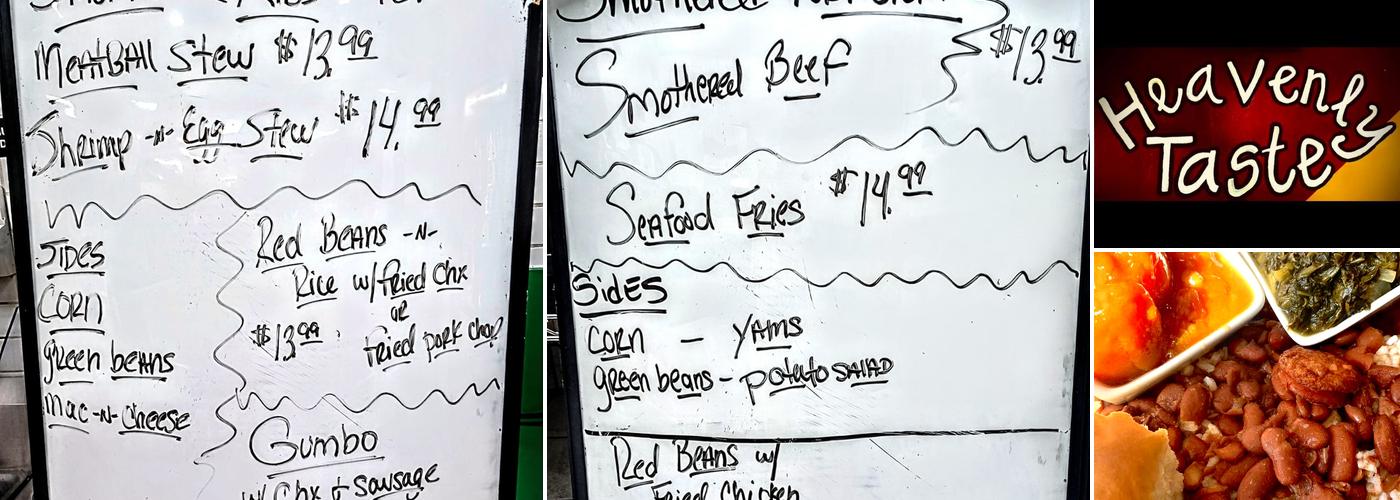 Meatball Stew $13.99
Shrimp -n- Egg Stew $14.99
Sides
Corn
green beans
Mac-n-Cheese
Red Beans -n-
Rice w/ fried Chx
or
$13.99
fried pork chop
Gumbo
w/ Chx + Sausage
Smothered
Smothered Beef
$13.99
Seafood Fries $14.99
Sides
Corn - Yams
green beans - potato salad
Red Beans w/
Fried Chicken
Heavenly
Taste